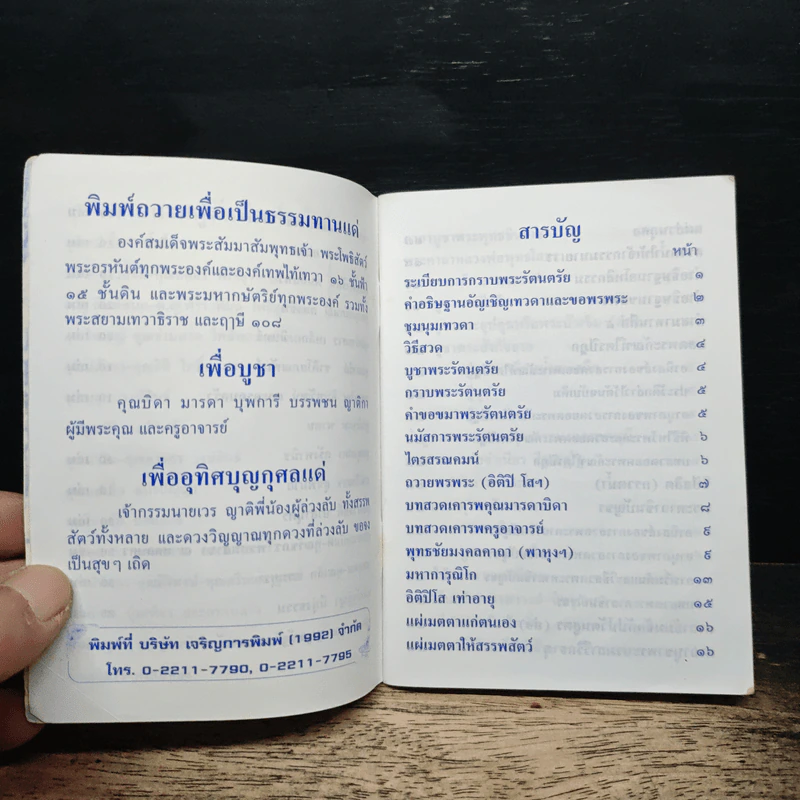 พิมพ์ถวายเพื่อเป็นธรรมทานแด่
องค์สมเด็จพระสัมมาสัมพุทธเจ้า พระโพธิสัตว์
พระอรหันต์ทุกพระองค์และองค์เทพไท้เทวา ๑๖ ชั้นฟ้า
๑๕ ชั้นดิน และพระมหากษัตริย์ทุกพระองค์ รวมทั้ง
พระสยามเทวาธิราช และฤาษี ๑๐๘
เพื่อบูชา
คุณบิดา มารดา บุพการี บรรพชน ญาติกา
ผู้มีพระคุณ และครูอาจารย์
เพื่ออุทิศบุญกุศลแด่
เจ้ากรรมนายเวร ญาติพี่น้องผู้ล่วงลับ ทั้งสรรพ
สัตว์ทั้งหลาย และดวงวิญญาณทุกดวงที่ล่วงลับ ขอจง
เป็นสุขๆ เถิด
พิมพ์ที่ บริษัท เจริญการพิมพ์ (1992) จำกัด
โทร. 0-2211-7790, 0-2211-7795
สารบัญ
หน้า
ระเบียบการกราบพระรัตนตรัย ๑
คำอธิษฐานอัญเชิญเทวดาและขอพรพระ ๒
ชุมนุมเทวดา ๓
วิธีสวด ๔
บูชาพระรัตนตรัย ๔
กราบพระรัตนตรัย ๕
คำขอขมาพระรัตนตรัย ๕
นมัสการพระรัตนตรัย ๖
ไตรสรณคมน์ ๖
ถวายพรพระ (อิติปิ โสฯ) ๗
บทสวดเคารพคุณมารดาบิดา ๘
บทสวดเคารพครูอาจารย์ ๙
พุทธชัยมงคลคาถา (พาหุงฯ) ๙
มหาการุณิโก ๑๓
อิติปิโส เท่าอายุ ๑๕
แผ่เมตตาแก่ตนเอง ๑๖
แผ่เมตตาให้สรรพสัตว์ ๑๖